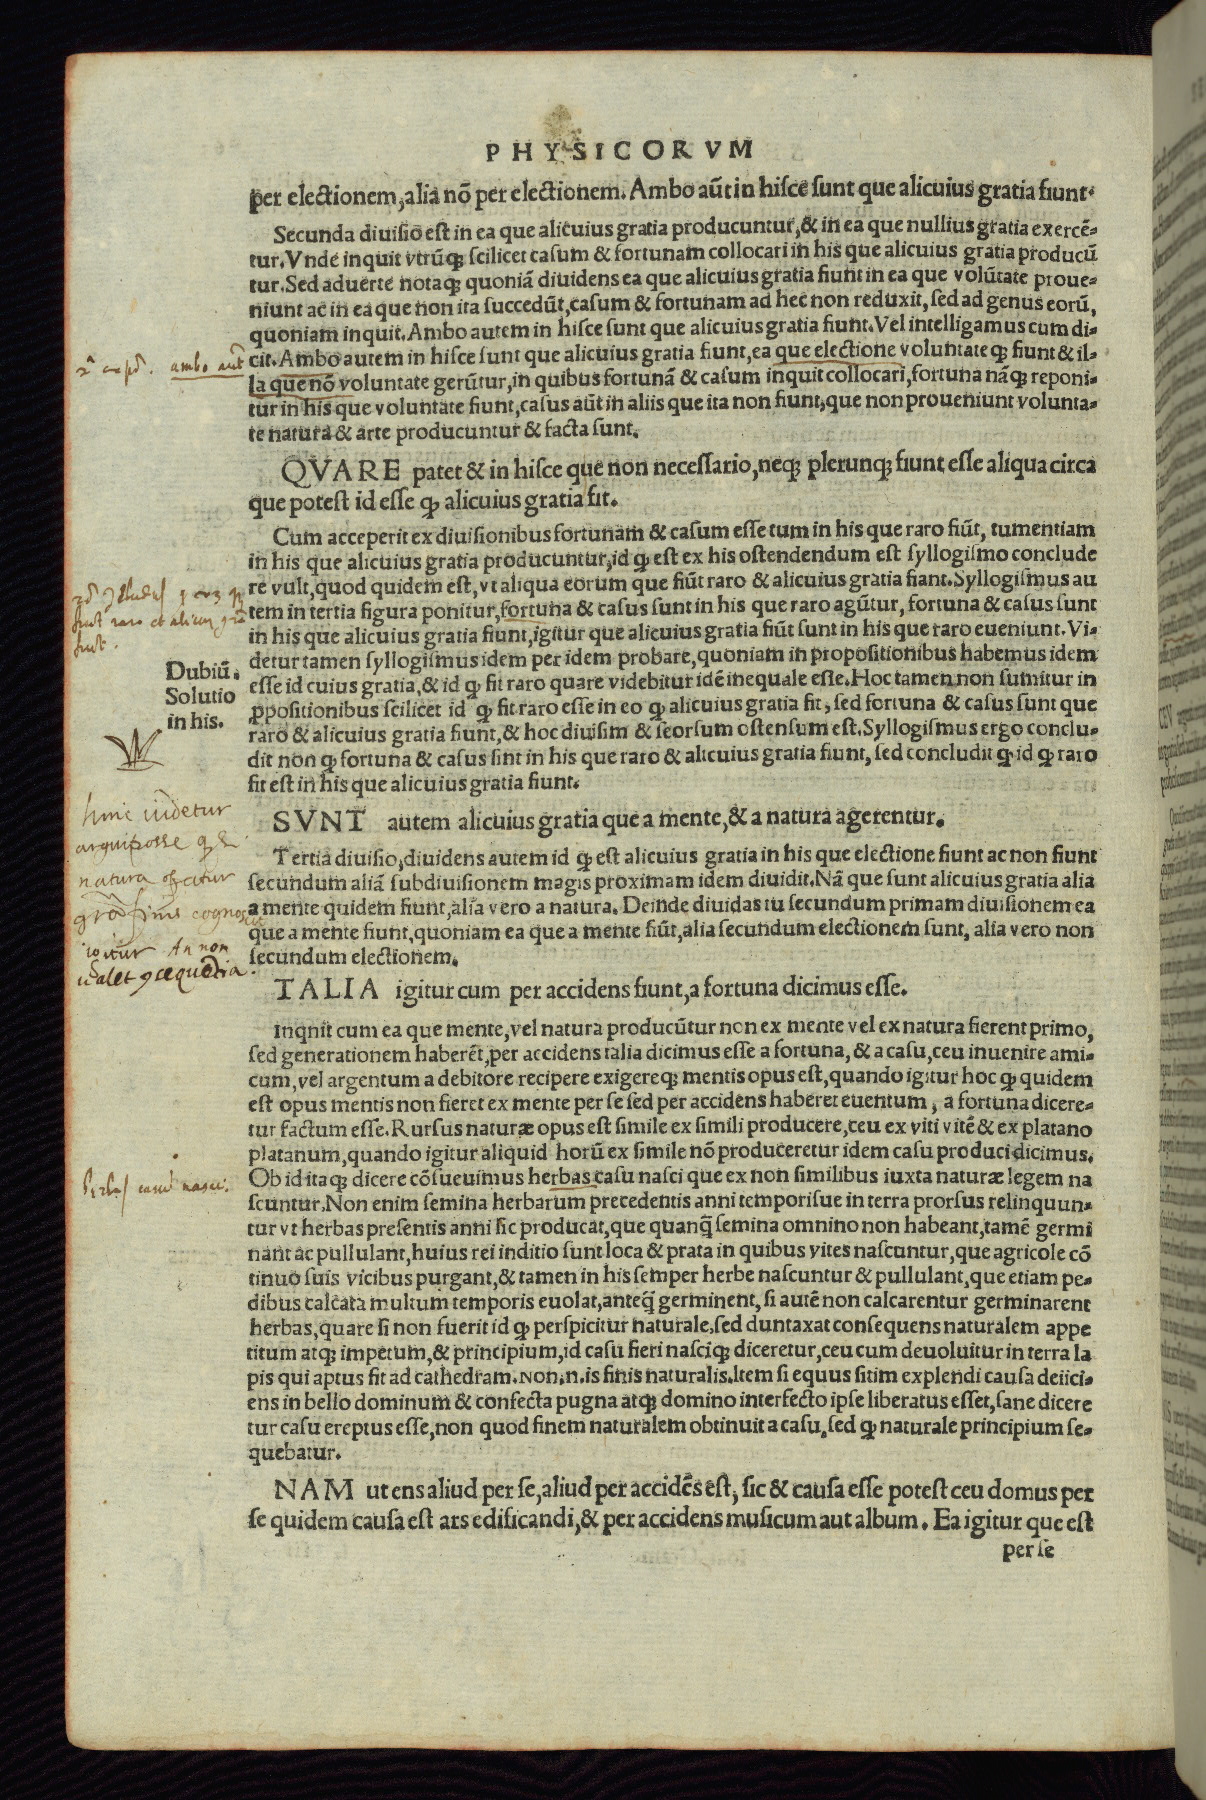 PHYSICORVM
per electionem, alia nõ per electionem. Ambo aũt in hisce sunt que alicuius gratia fiunt.
Secunda diuisio est in ea que alicuius gratia producuntur, & in ea que nullius gratia exercẽ-
tur. Vnde inquit vtrũq; scilicet casum & fortunam collocari in his que alicuius gratia producũ
tur. Sed aduerte notaq; quoniã diuidens ea que alicuius gratia fiunt in ea que volũtate proue-
niunt ac in ea que non ita succedũt, casum & fortunam ad hec non reduxit, sed ad genus eorũ,
quoniam inquit. Ambo autem in hisce sunt que alicuius gratia fiunt. Vel intelligamus cum di-
ambo aut
cit. Ambo autem in hisce sunt que alicuius gratia fiunt, ea que electione voluntateq; fiunt & il-
la que nõ voluntate gerũtur, in quibus fortunã & casum inquit collocari, fortuna nãq; reponi-
tur in his que voluntate fiunt, casus aũt in aliis que ita non fiunt, que non proueniunt volunta-
te natura & arte producuntur & facta sunt.
QVARE patet & in hisce que non necessario, neq; plerunq; fiunt esse aliqua circa
que potest id esse ꝙ alicuius gratia fit.
Cum acceperit ex diuisionibus fortunam & casum esse tum in his que raro fiũt, tum etiam
in his que alicuius gratia producuntur, id ꝙ est ex his ostendendum est syllogismo conclude
re vult, quod quidem est, vt aliqua eorum que fiũt raro & alicuius gratia fiant. Syllogismus au
tem in tertia figura ponitur, fortuna & casus sunt in his que raro agũtur, fortuna & casus sunt
fiunt raro et alicuius
fiunt.
in his que alicuius gratia fiunt, igitur que alicuius gratia fiũt sunt in his que raro eueniunt. Vi-
detur tamen syllogismus idem per idem probare, quoniam in propositionibus habemus idem
Dubiũ.
Solutio
in his.
esse id cuius gratia, & id ꝙ fit raro quare videbitur idẽ inequale esse. Hoc tamen non sumitur in
ꝓpositionibus scilicet id ꝙ fit raro esse in eo ꝙ alicuius gratia fit, sed fortuna & casus sunt que
raro & alicuius gratia fiunt, & hoc diuisim & seorsum ostensum est. Syllogismus ergo conclu-
dit non ꝙ fortuna & casus sint in his que raro & alicuius gratia fiunt, sed concludit ꝙ id ꝙ raro
fit est in his que alicuius gratia fiunt.
hinc uidetur
argui posse
natura
finis cognoscit
igitur An non
ualet
SVNT autem alicuius gratia que a mente, & a natura agerentur.
Tertia diuisio, diuidens autem id ꝙ est alicuius gratia in his que electione fiunt ac non fiunt
secundum aliã subdiuisionem magis proximam idem diuidit. Nã que sunt alicuius gratia alia
a mente quidem fiunt, alia vero a natura. Deinde diuidas tu secundum primam diuisionem ea
que a mente fiunt, quoniam ea que a mente fiũt, alia secundum electionem sunt, alia vero non
secundum electionem.
TALIA igitur cum per accidens fiunt, a fortuna dicimus esse.
Inqnit cum ea que mente, vel natura producũtur non ex mente vel ex natura fierent primo,
sed generationem haberẽt, per accidens talia dicimus esse a fortuna, & a casu, ceu inuenire ami-
cum, vel argentum a debitore recipere exigereq; mentis opus est, quando igitur hoc ꝙ quidem
est opus mentis non fieret ex mente per se sed per accidens haberet euentum, a fortuna dicere-
tur factum esse. Rursus naturæ opus est simile ex simili producere, ceu ex viti vitẽ & ex platano
platanum, quando igitur aliquid horũ ex simile nõ produceretur idem casu produci dicimus.
herbas casu nasci.
Ob id itaq; dicere cõsueuimus herbas casu nasci que ex non similibus iuxta naturæ legem na
scuntur. Non enim semina herbarum precedentis anni temporisue in terra prorsus relinquun-
tur vt herbas presentis anni sic producãt, que quanq̃ semina omnino non habeant, tamẽ germi
nant ac pullulant, huius rei inditio sunt loca & prata in quibus vites nascuntur, que agricole cõ
tinuo suis vicibus purgant, & tamen in his semper herbe nascuntur & pullulant, que etiam pe-
dibus calcata multum temporis euolat, anteq̃ germinent, si autẽ non calcarentur germinarent
herbas, quare si non fuerit id ꝙ perspicitur naturale, sed duntaxat consequens naturalem appe
titum atq; impetum, & principium, id casu fieri nasciq; diceretur, ceu cum deuoluitur in terra la
pis qui aptus fit ad cathedram. Non.n. is finis naturalis. Item si equus sitim explendi causa deiici-
ens in bello dominum & confecta pugna atq; domino interfecto ipse liberatus esset, sane dicere
tur casu ereptus esse, non quod finem naturalem obtinuit a casu, sed ꝙ naturale principium se-
quebatur.
NAM ut ens aliud per se, aliud per accidẽs est, sic & causa esse potest ceu domus per
se quidem causa est ars edificandi, & per accidens musicum aut album. Ea igitur que est
per se